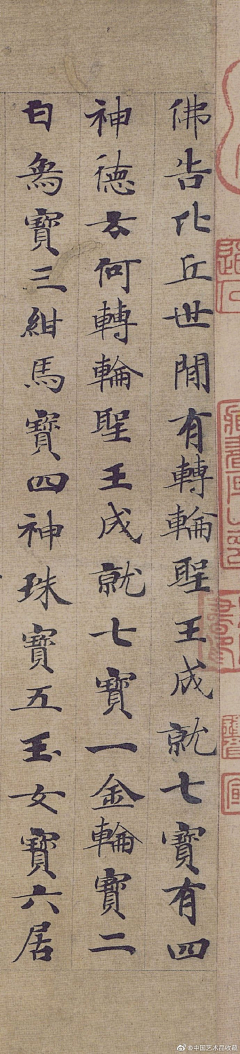 佛告比丘世閒有轉輪聖王成就七寶有四
神德云何轉輪聖王成就七寶一金輪寶二
白象寶三紺馬寶四神珠寶五玉女寶六居